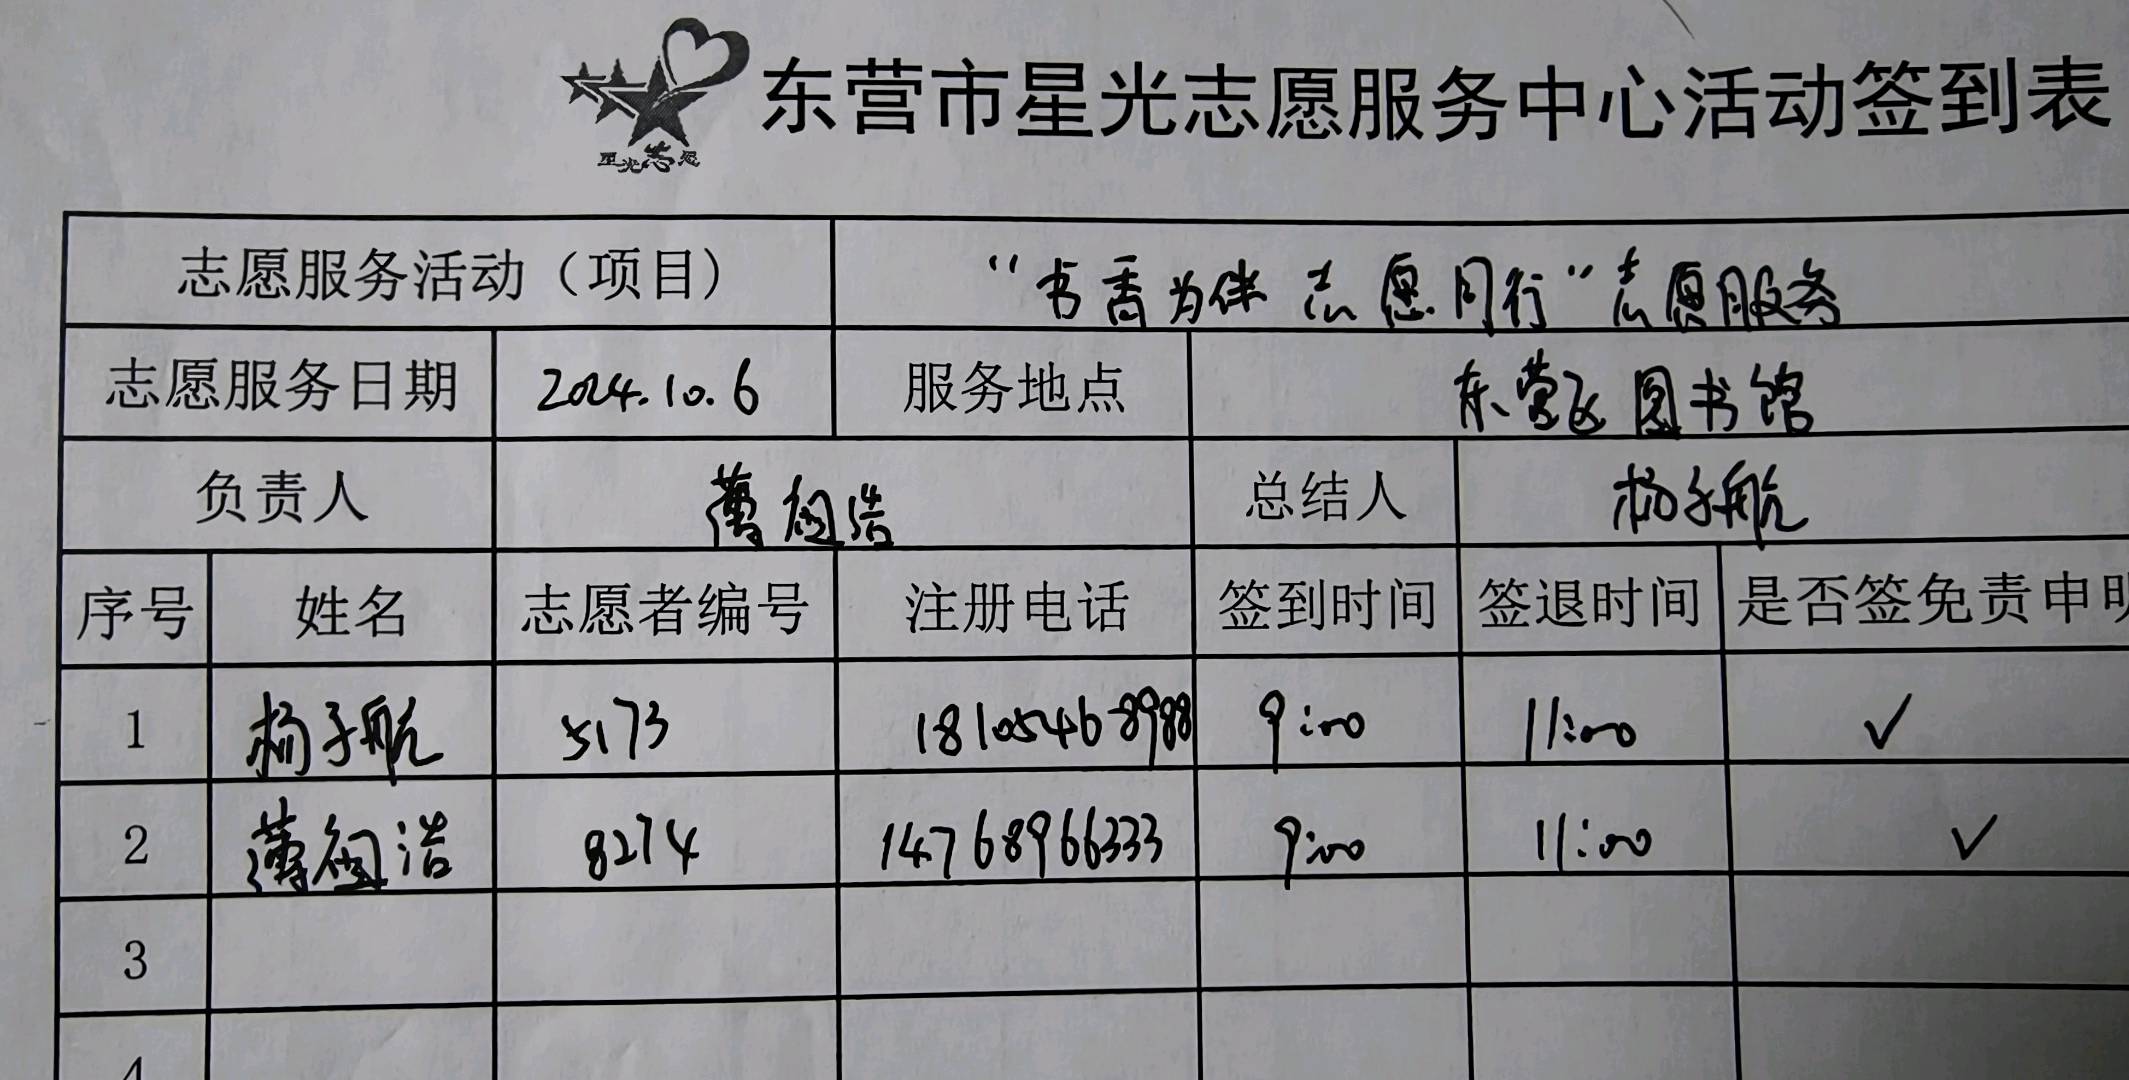 星光志愿
东营市星光志愿服务中心活动签到表
志愿服务活动（项目） “书香为伴 志愿同行”志愿服务
志愿服务日期 2024.10.6 服务地点 东营区图书馆
负责人 浩 总结人 杨子航
序号 姓名 志愿者编号 注册电话 签到时间 签退时间 是否签免责申明
1 杨子航 5173 18105468988 9:00 11:00 ✓
2 浩 8274 14768966333 9:00 11:00 ✓
3
4